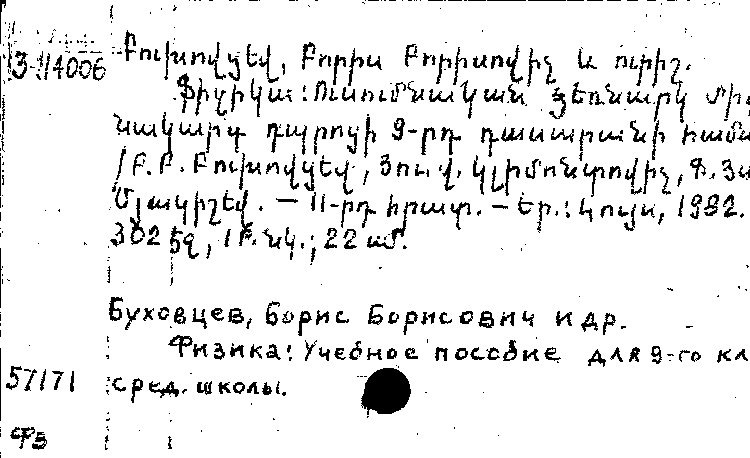 3-114006
Բուխովցեվ, Բորիս Բորիսովիչ և ուրիշ.
Ֆիզիկա: Ուսումնական ձեռնարկ միջ
նակարգ դպրոցի 9-րդ դասարանի համա
/Բ.Բ. Բուխովցեվ, Յու. Լ. Կլիմոնտովիչ, Գ. Յա
Մյակիշեվ. — 11-րդ հրատ. — Եր.: Լույս, 1982.
302 էջ, 1 թ. նկ.; 22 սմ.
Буховцев, Борис Борисович и др.
Физика: Учебное пособие для 9-го кл
57171
сред. школы.
Фз